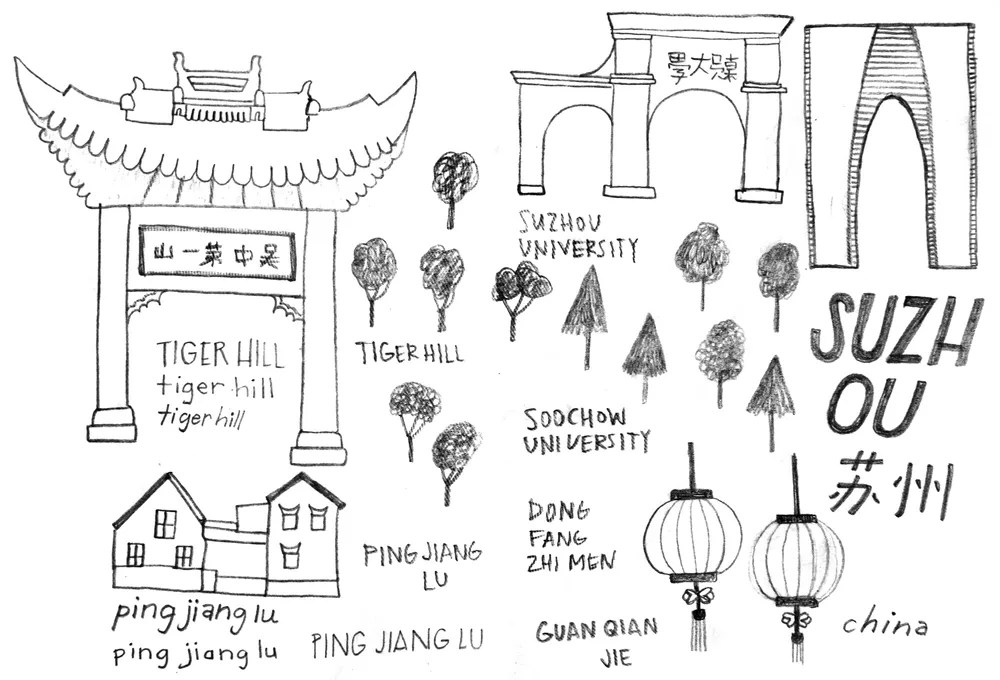 吳中第一山
TIGER HILL
tiger hill
tiger hill
TIGER HILL
東吳大學
SUZHOU
UNIVERSITY
SOOCHOW
UNIVERSITY
SUZH
OU
苏州
DONG
FANG
ZHI MEN
PING JIANG
LU
ping jiang lu
ping jiang lu
PING JIANG LU
GUAN QIAN
JIE
china